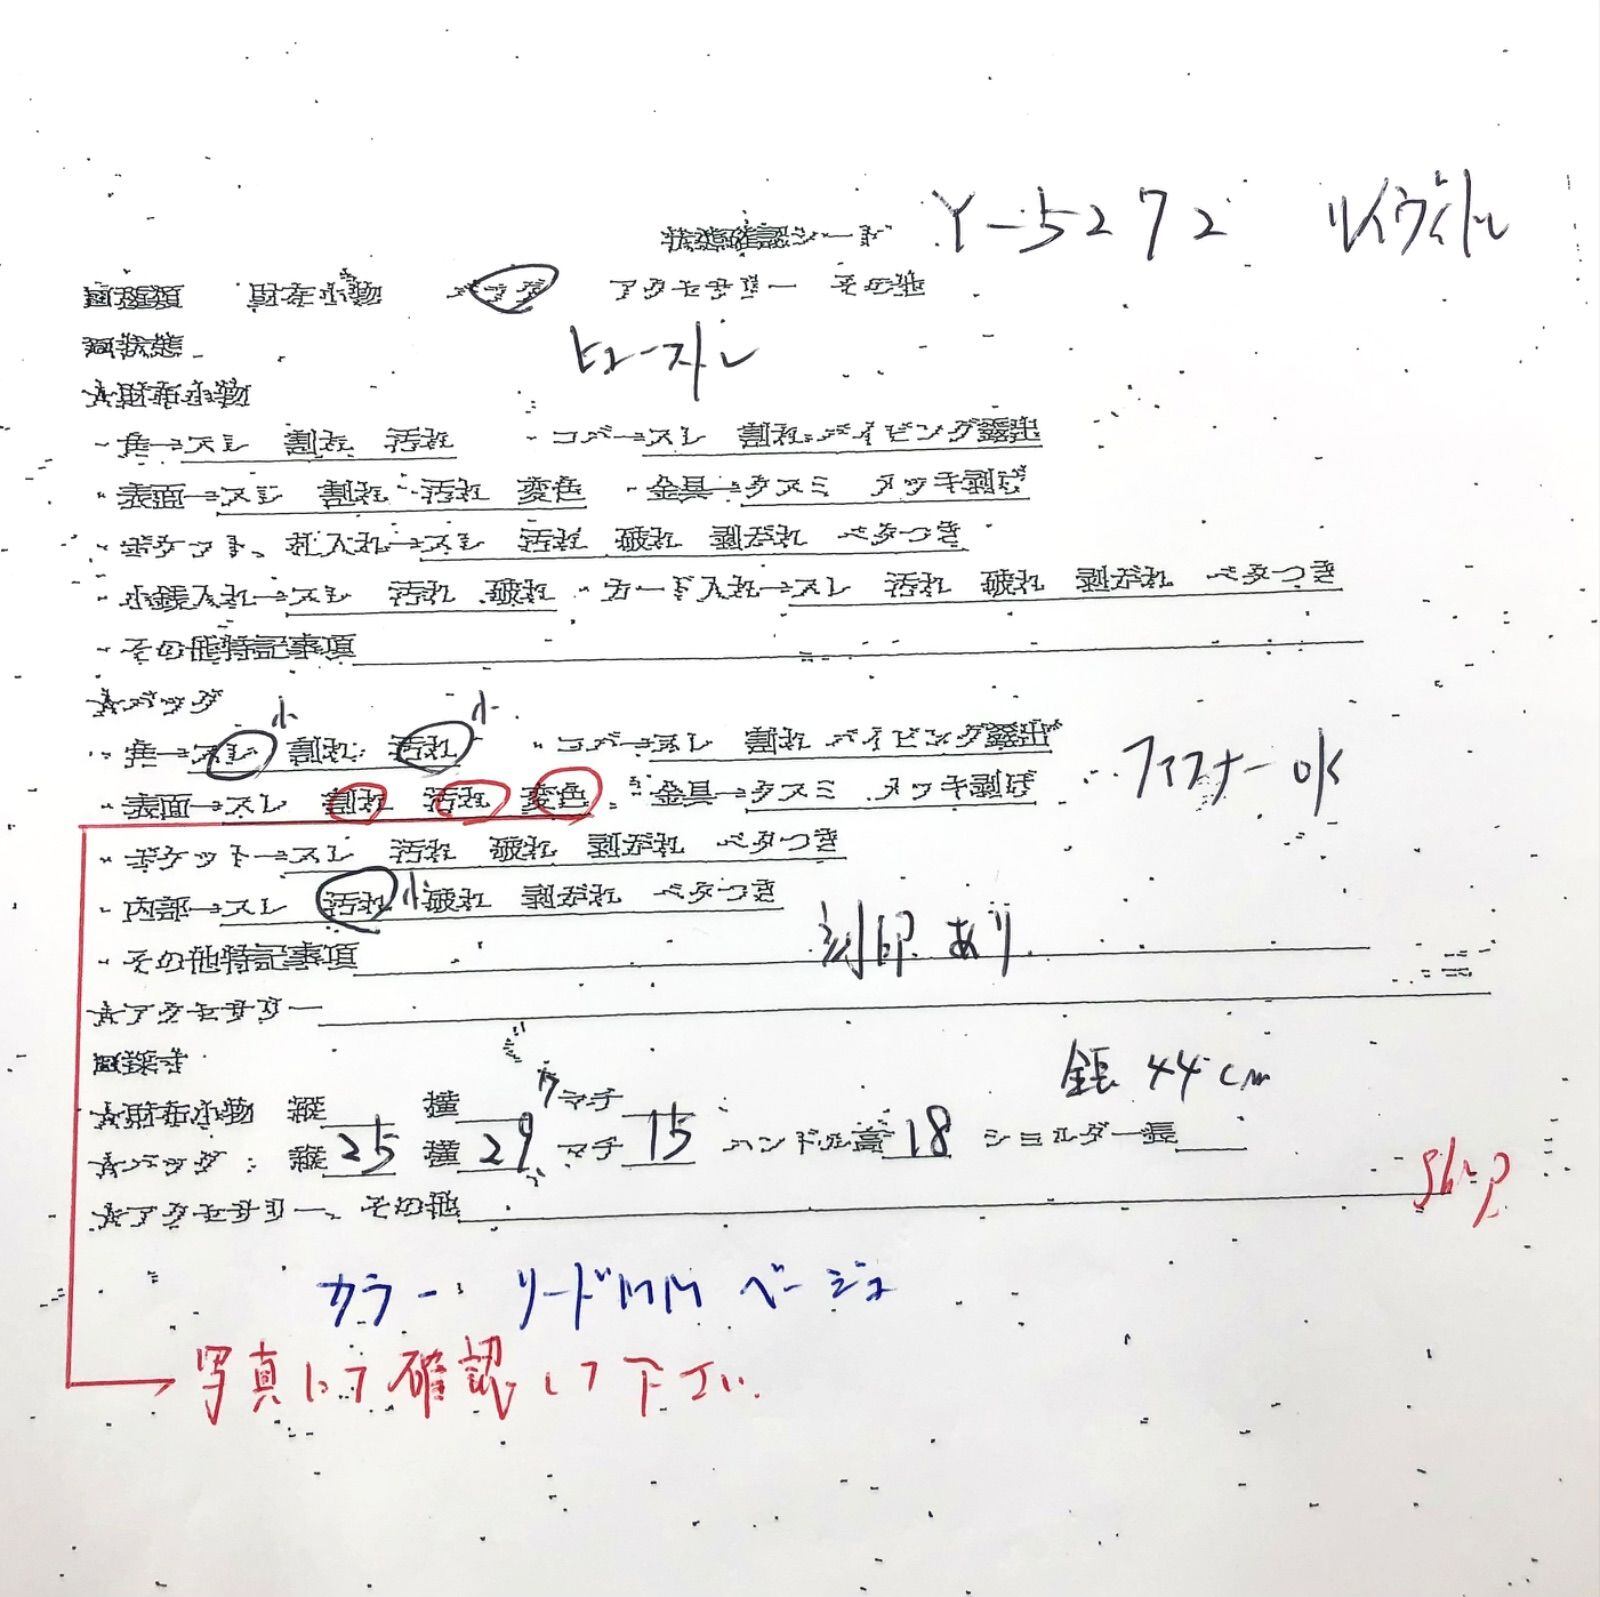 状態確認シート Y-5272 ルイヴィトン
種類 財布小物 バッグ アクセサリー その他
状態 ヒューストン
☆財布小物
・角→スレ 割れ 汚れ ・コバ→スレ 割れ パイピング露出
・表面→スレ 割れ 汚れ 変色 ・金具→クスミ メッキ剥げ
・ポケット、札入れ→スレ 汚れ 破れ 剥がれ ベタつき
・小銭入れ→スレ 汚れ 破れ ・カード入れ→スレ 汚れ 破れ 剥がれ ベタつき
・その他特記事項
☆バッグ
小 小
・角→スレ 割れ 汚れ ・コバ→スレ 割れ パイピング露出
・表面→スレ 割れ 汚れ 変色 ・金具→クスミ メッキ剥げ ファスナーOK
・ポケット→スレ 汚れ 破れ 剥がれ ベタつき
・内部→スレ 汚れ 小 破れ 剥がれ ベタつき
・その他特記事項 刻印あり
☆アクセサリー
採寸
全長 44cm
☆財布小物 縦 横 マチ
☆バッグ: 縦 25 横 29 マチ 15 ハンドル高 18 ショルダー長
☆アクセサリー、その他
カラー リードMM ベージュ
写真にて確認して下さい。